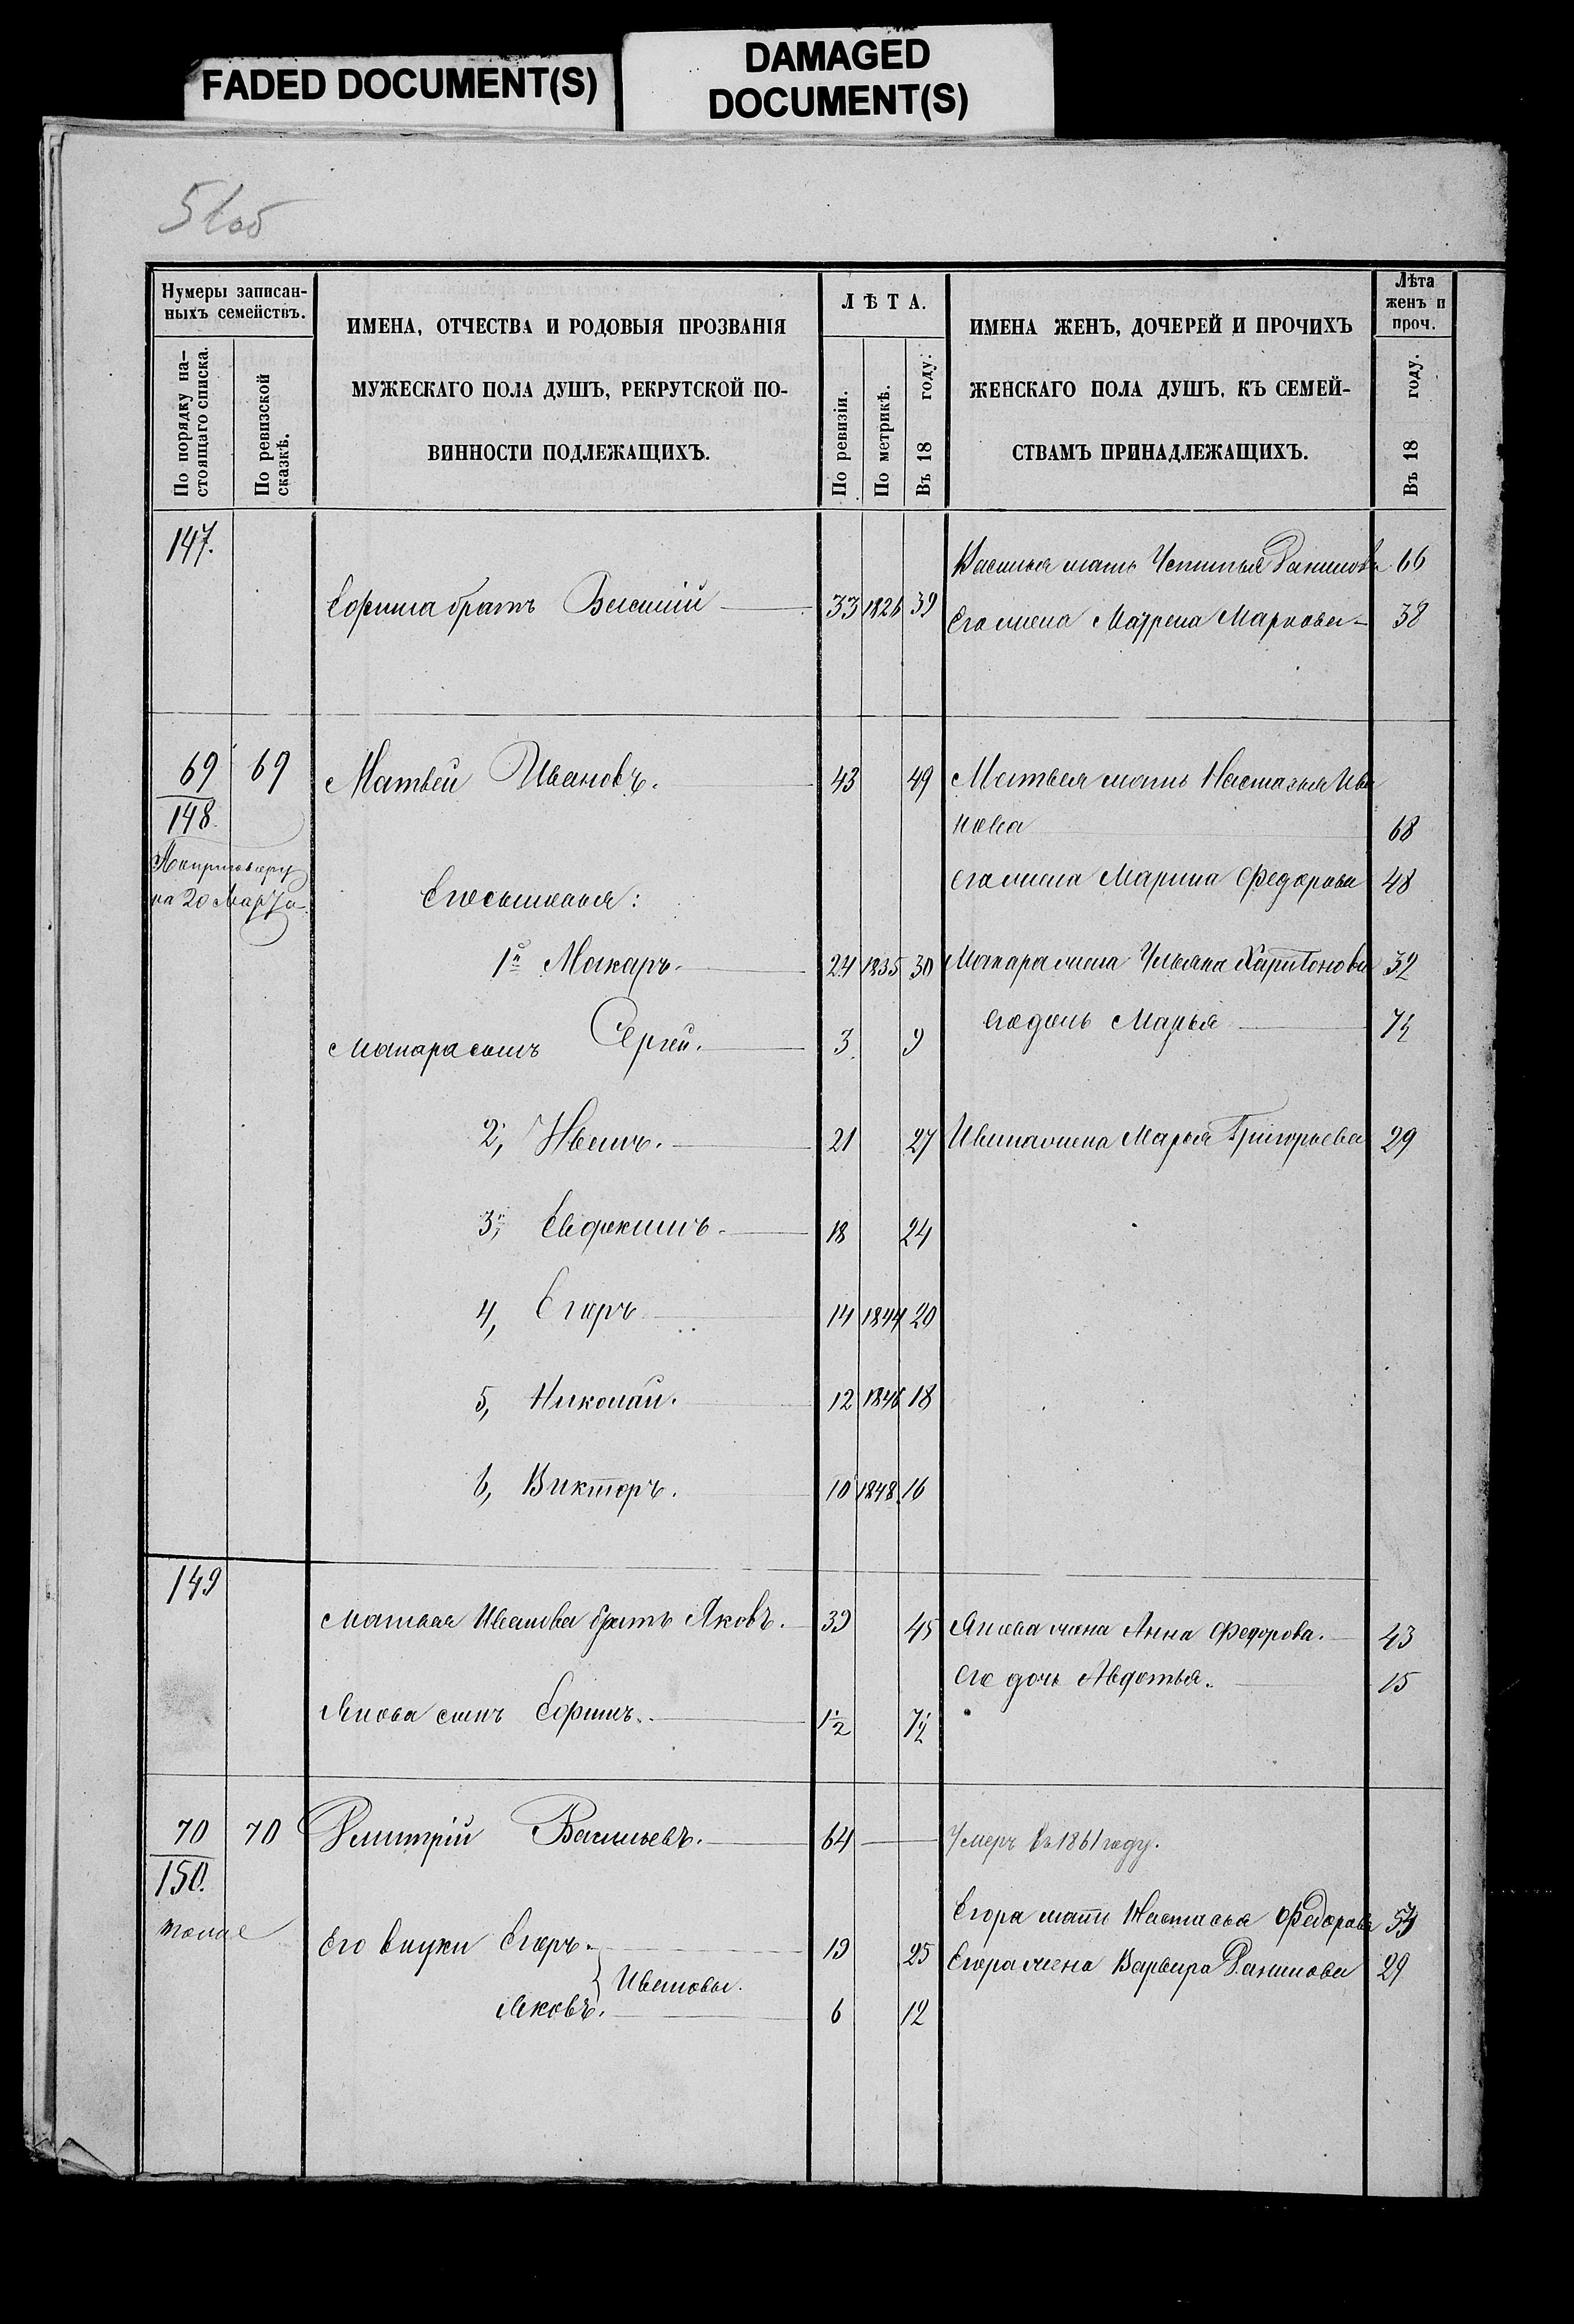 FADED DOCUMENT(S)
DAMAGED
DOCUMENT(S)
51 об
Нумеры записан-
ныхъ семействъ.
По порядку на-
стоящаго списка.
По ревизской
сказкѣ.
ИМЕНА, ОТЧЕСТВА И РОДОВЫЯ ПРОЗВАНІЯ
МУЖЕСКАГО ПОЛА ДУШЪ, РЕКРУТСКОЙ ПО-
ВИННОСТИ ПОДЛЕЖАЩИХЪ.
ЛѢТА.
По ревизіи.
По метрикѣ.
Въ 18 году.
ИМЕНА ЖЕНЪ, ДОЧЕРЕЙ И ПРОЧИХЪ
ЖЕНСКАГО ПОЛА ДУШЪ, КЪ СЕМЕЙ-
СТВАМЪ ПРИНАДЛЕЖАЩИХЪ.
Лѣта
женъ и
проч.
Въ 18 году.
147.
Василья мать Данилова 66
Софрона братъ Василій 33 1826 39 Его жена Матрена Маркова 38
69 69 Матвей Ивановъ. 43 49 Матвея мать Настасья Ива
148. нова 68
По приговору
на 20 Марта
Его жена Марина Федорова 48
Его сыновья:
1й Макаръ. 24 1835 30 Макара жена Ульяна Харитонова 32
его дочь Марья 7½
Макара сынъ Сергей. 3 9
2, Иванъ. 21 27 Ивана жена Марья Григорьева 29
3, Евдокимъ. 18 24
4, Егоръ 14 1844 20
5, Николай. 12 1846 18
6, Викторъ. 10 1848 16
149
Матвея Иванова братъ Яковъ. 39 45 Якова жена Анна Федорова. 43
Его дочь Авдотья. 15
Якова сынъ 1½ 7½
70 70 Дмитрій Васильевъ. 64 Умеръ въ 1861 году.
150.
тоже
Егора мать Настасья Федорова
Его внуки Егоръ. 19 25 Егора жена Варвара Данилова 29
Ивановы.
Яковъ. 6 12